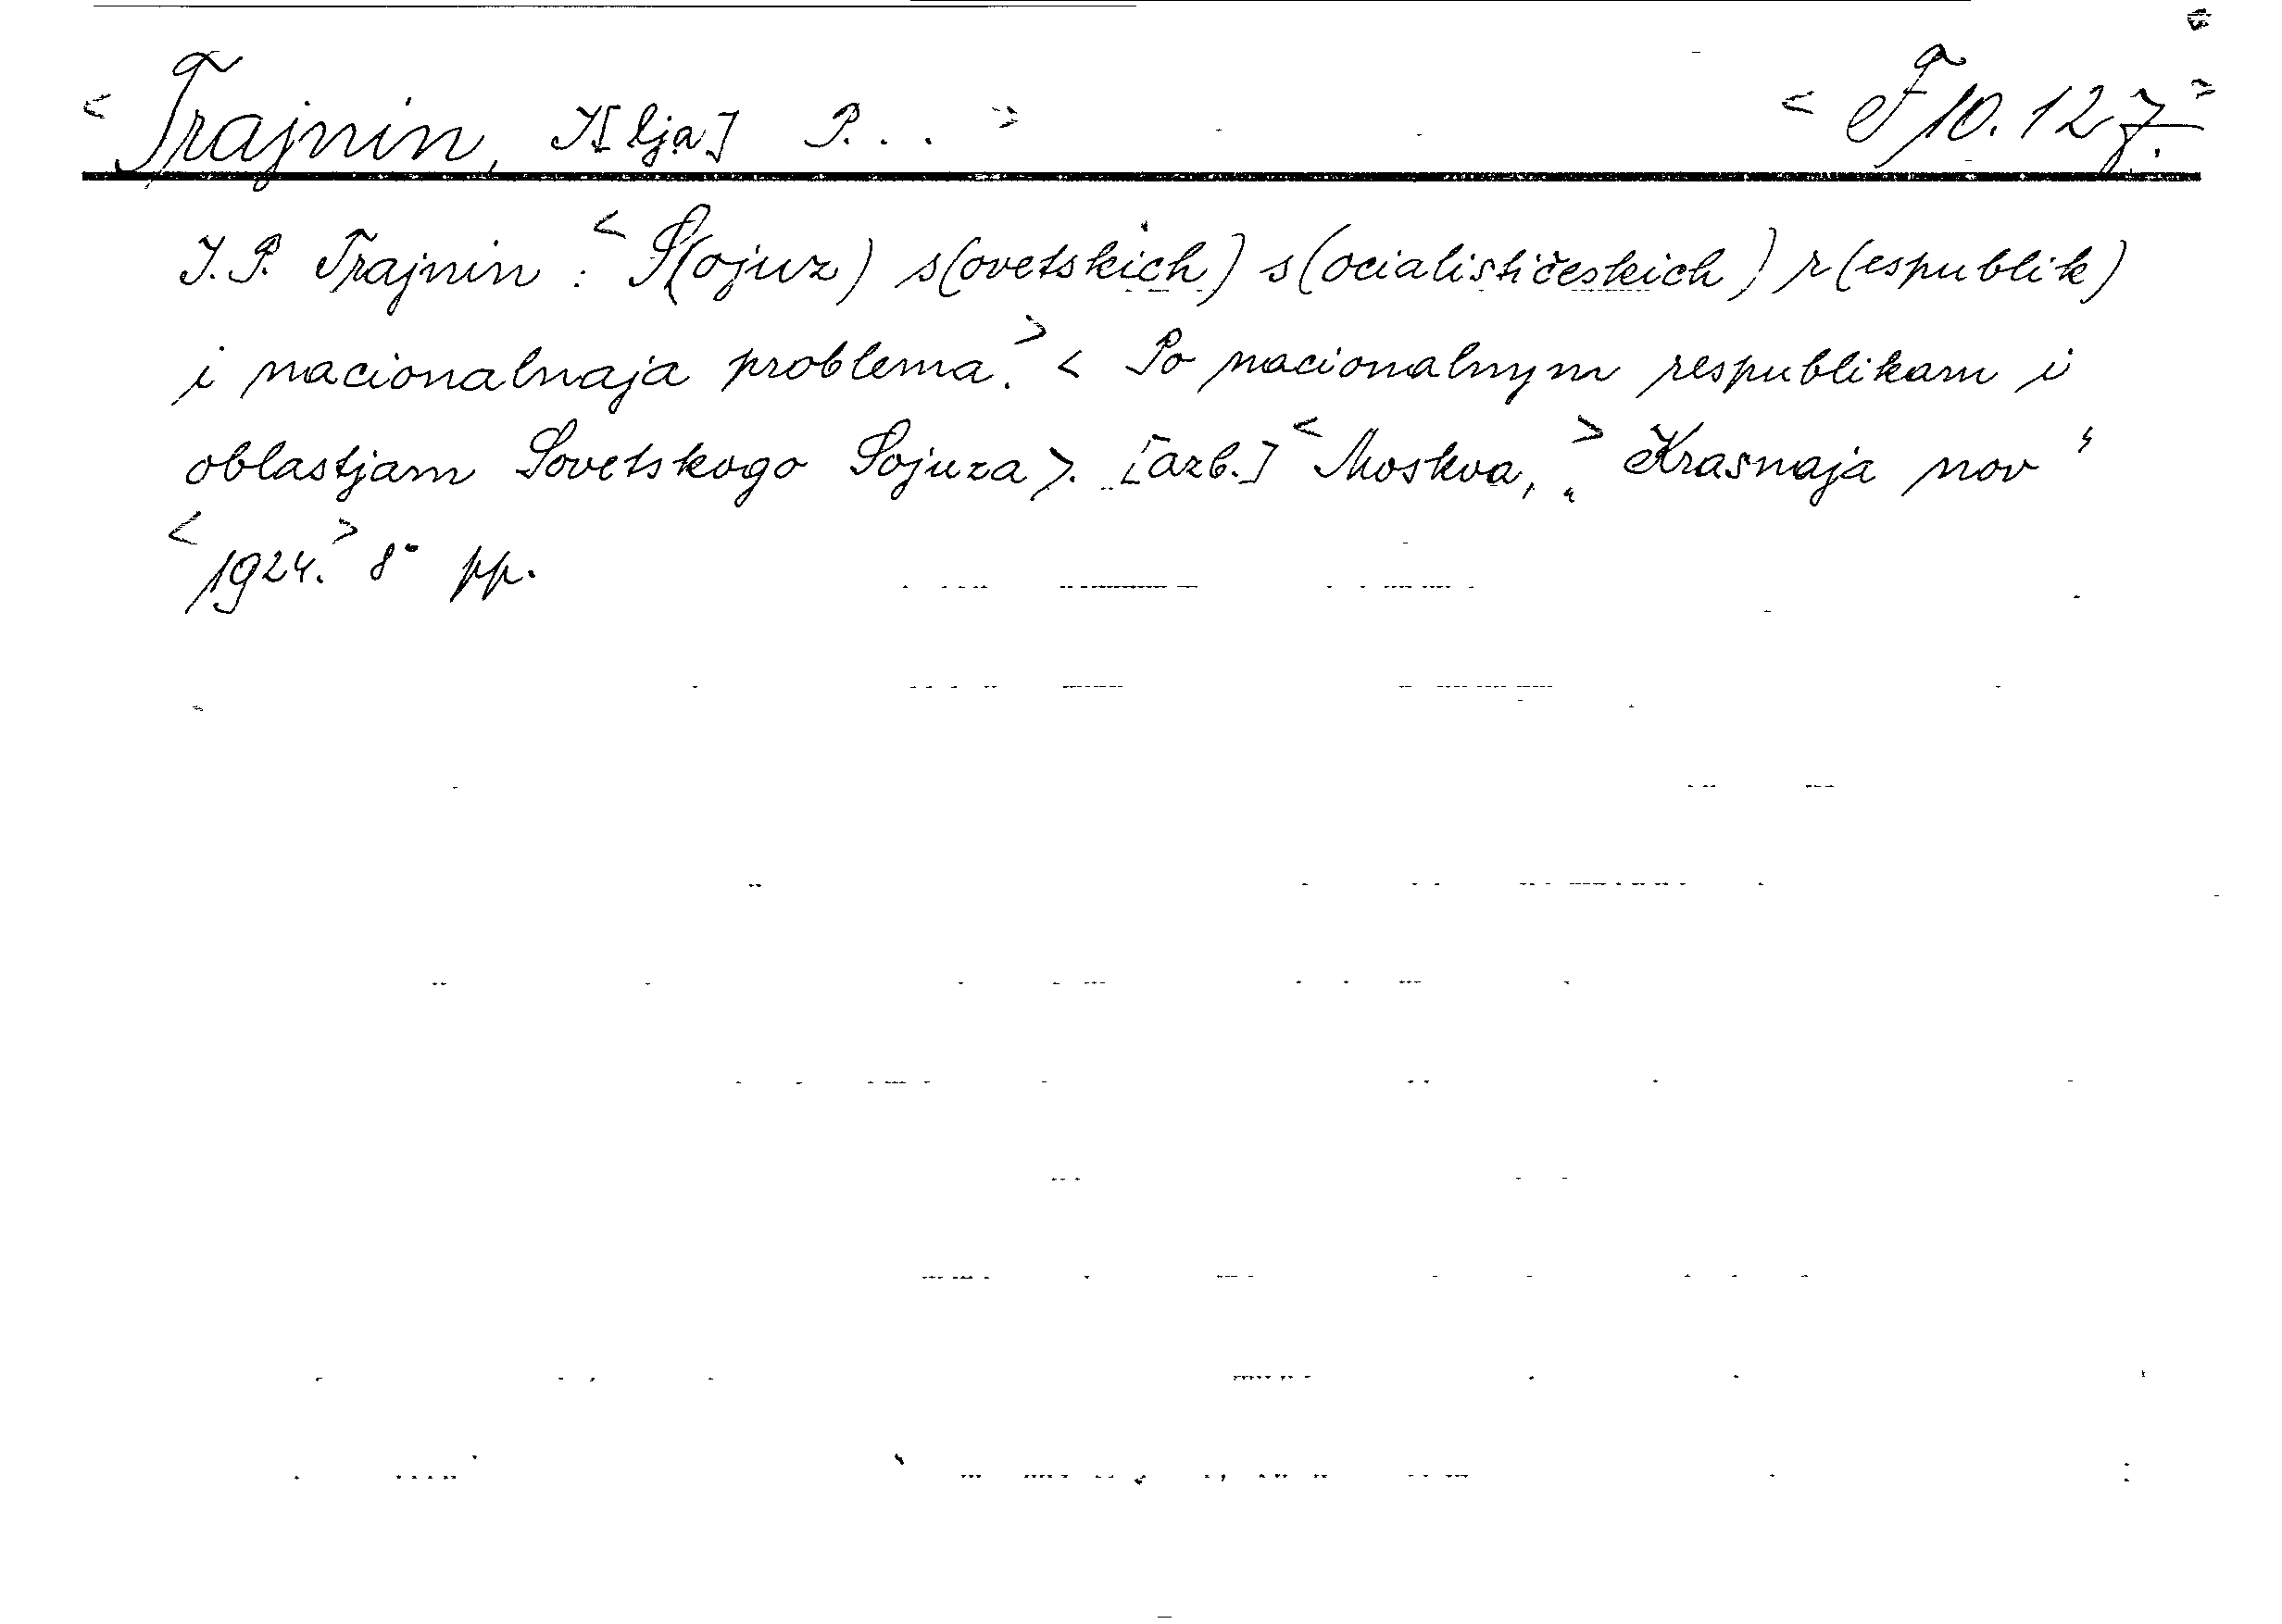 < Trajnin, I[lja] P... > < F 10.127. >
I. P. Trajnin : < S(ojuz) s(ovetskich) s(ocialističeskich) r(espublik)
i nacionalnaja problema. > < Po nacionalnym respublikam i
oblastjam Sovetskogo Sojuza >. [azb.] < Moskva, > „Krasnaja nov“
< 1924. > 8° pp.